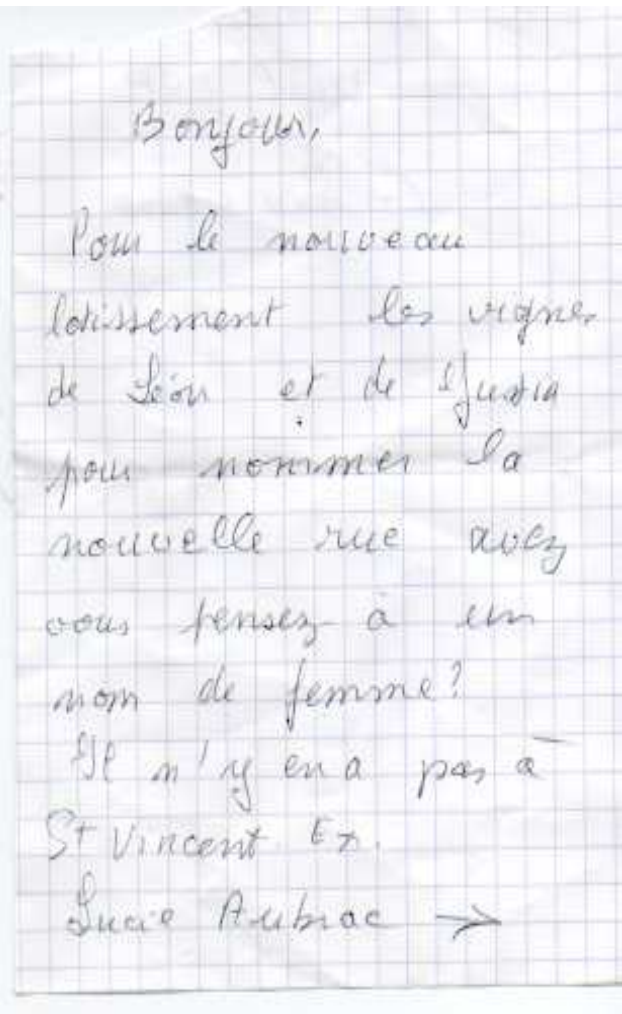 Bonjour,
Pour le nouveau
lotissement les vignes
de Léon et de Justin
pour nommer la
nouvelle rue avez
vous pensez à un
nom de femme?
Il n'y en a pas à
St Vincent Ex.
Lucie Aubrac →